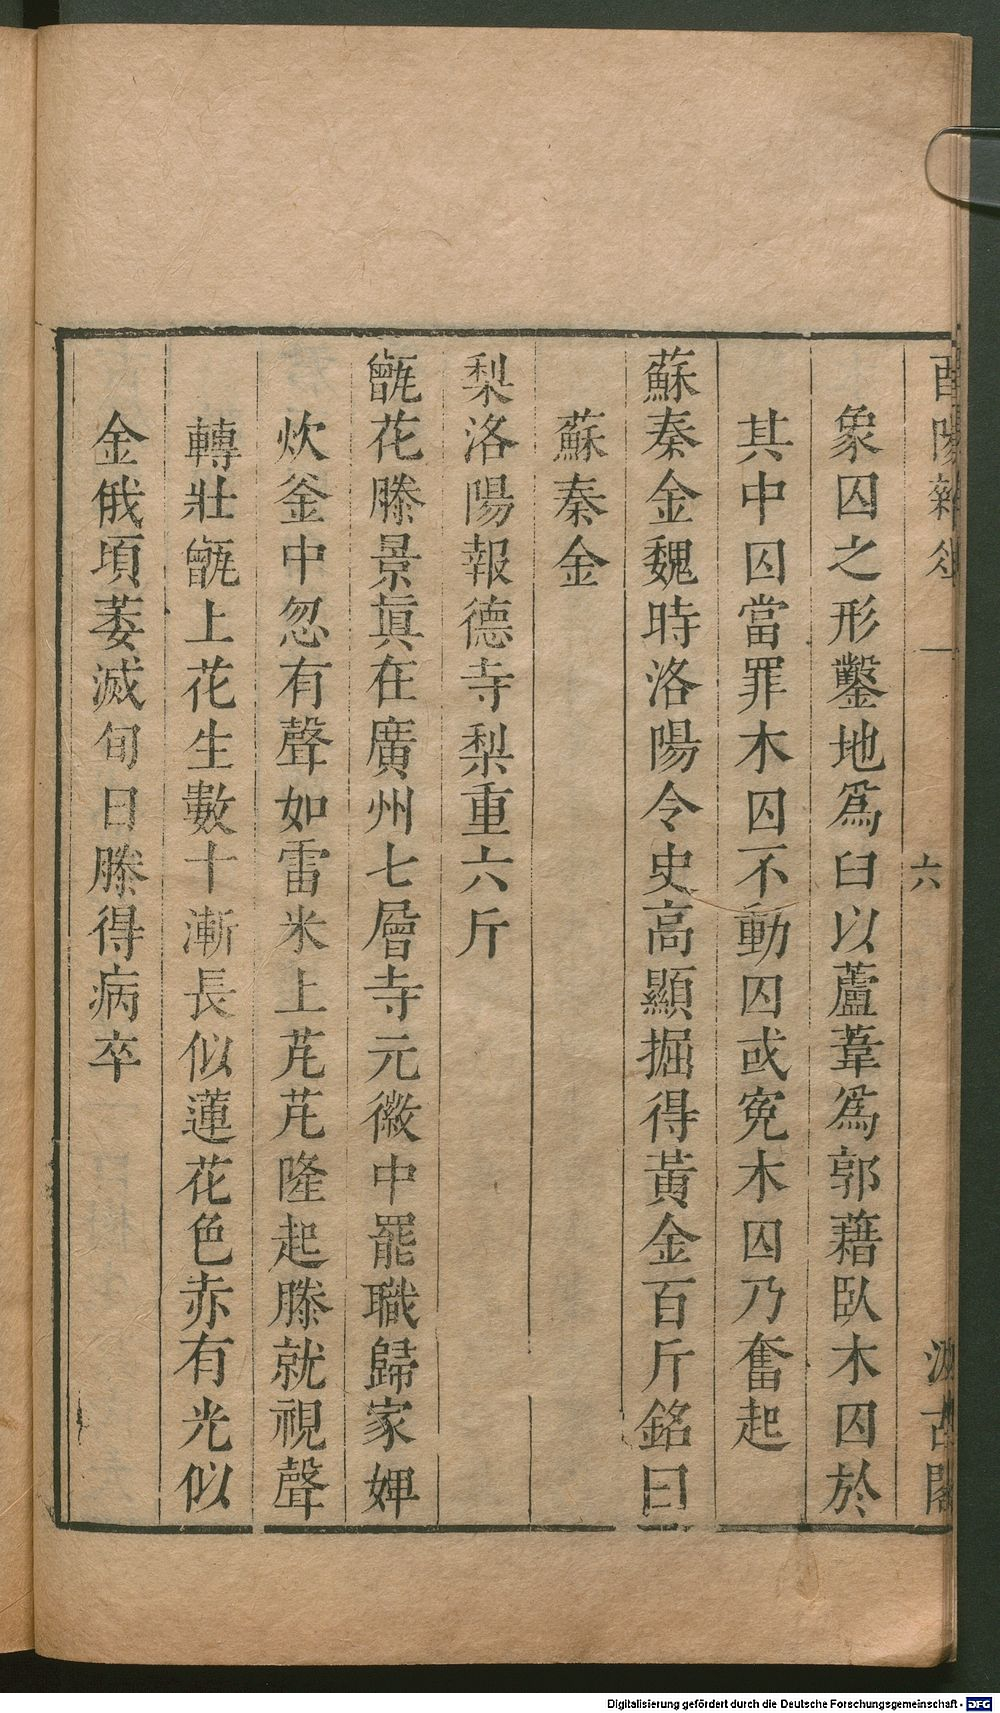 酉陽雜俎 一 六 汲古閣
象囚之形鑿地爲臼以蘆葦爲郭藉臥木囚於
其中囚當罪木囚不動囚或寃木囚乃奮起
蘇秦金魏時洛陽令史高顯掘得黃金百斤銘曰
蘇秦金
梨洛陽報德寺梨重六斤
甑花滕景眞在廣州七層寺元徽中罷職歸家婢
炊釜中忽有聲如雷米上芃芃隆起滕就視聲
轉壯甑上花生數十漸長似蓮花色赤有光似
金俄頃萎滅旬日滕得病卒
Digitalisierung gefördert durch die Deutsche Forschungsgemeinschaft - DFG